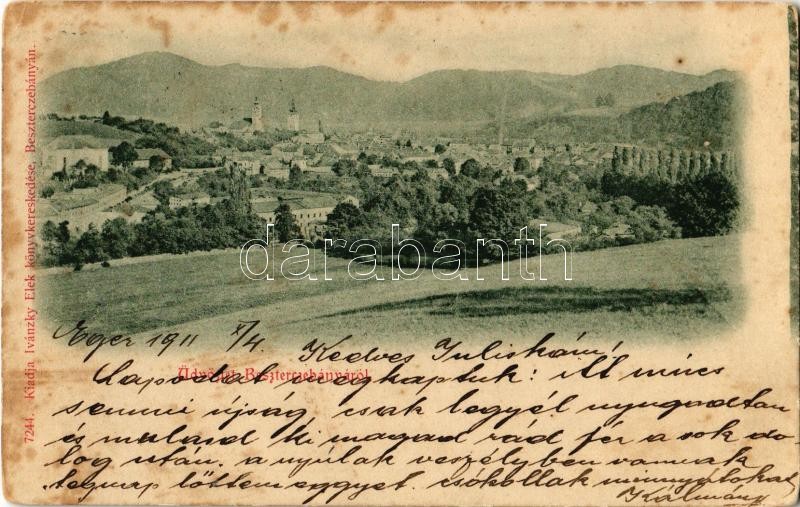 7244. Kiadja Ivánzky Elek könyvkereskedése, Beszterczebányán.
darabanth
Eger 1911 X/4
Üdvözlet Beszterczebányáról
Kedves Juliskám!
Lapodat megkaptuk: Itt nincs
semmi újság, csak legyél nyugodtan
és mulasd ki magad rád fér a sok do-
log után. a nyulak veszélyben vannak
tegnap lőttem egyet. csókollak mennyutokat
Kálmán